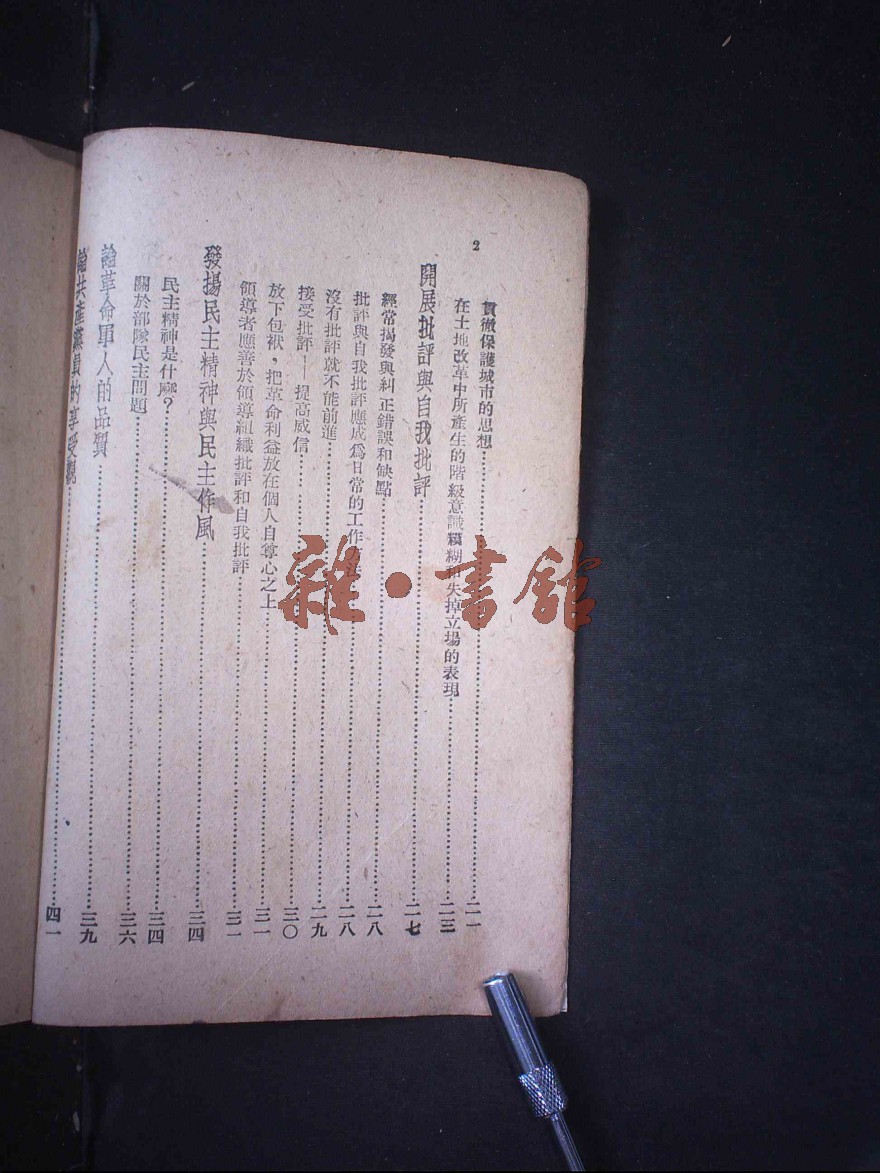 2
貫徹保護城市的思想……二一
在土地改革中所產生的階級意識糢糊和失掉立場的表現……二三
開展批評與自我批評……二七
經常揭發與糾正錯誤和缺點……二八
批評與自我批評應成爲日常的工作方法……二八
沒有批評就不能前進……二九
接受批評——提高威信……三〇
放下包袱，把革命利益放在個人自尊心之上……三一
領導者應善於領導組織批評和自我批評……三一
發揚民主精神與民主作風……三四
民主精神是什麽？……三四
關於部隊民主問題……三六
論革命軍人的品質……三九
論共產黨員的享受觀……四一
雜·書館